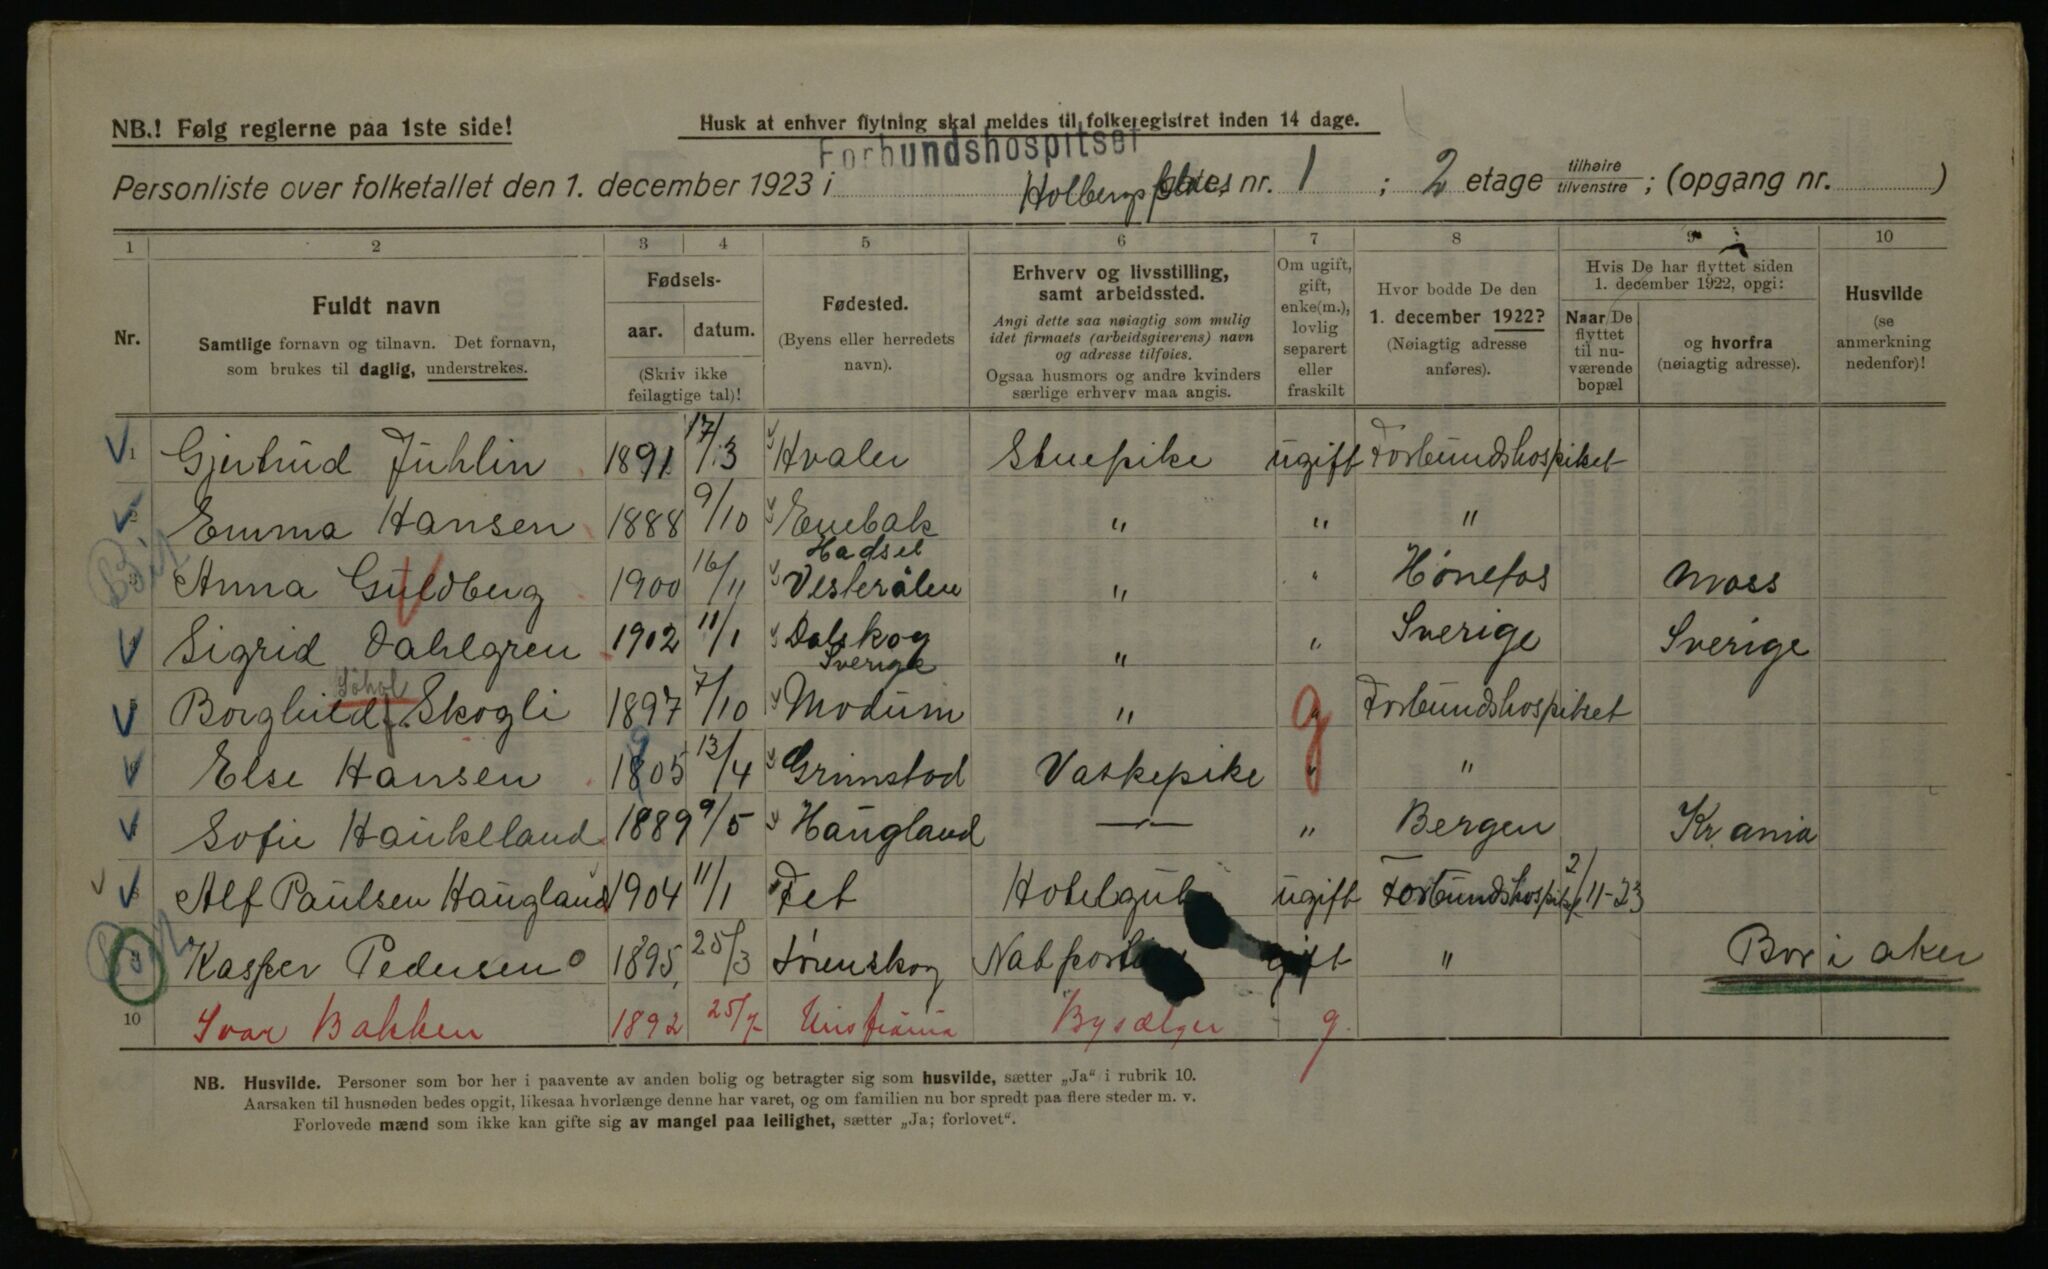 NB.! Følg reglerne paa 1ste side!
Husk at enhver flytning skal meldes til folkeregistret inden 14 dage.
Forbundshospitset
Personliste over folketallet den 1. december 1923 i Holbergs plads nr. 1 ; 2 etage tilhøire tilvenstre ; (opgang nr. )
1 2 3 4 5 6 7 8 9 10
Nr.
Fuldt navn
Samtlige fornavn og tilnavn. Det fornavn,
som brukes til daglig, understrekes.
Fødsels-
aar. datum.
(Skriv ikke
feilagtige tal)!
Fødested.
(Byens eller herredets
navn).
Erhverv og livsstilling,
samt arbeidssted.
Angi dette saa nøiagtig som mulig
idet firmaets (arbeidsgiverens) navn
og adresse tilføies.
Ogsaa husmors og andre kvinders
særlige erhverv maa angis.
Om ugift,
gift,
enke(m.),
lovlig
separert
eller
fraskilt
Hvor bodde De den
1. december 1922?
(Nøiagtig adresse
anføres).
Hvis De har flyttet siden
1. december 1922, opgi:
Naar De
flyttet
til nu-
værende
bopæl
og hvorfra
(nøiagtig adresse).
Husvilde
(se
anmerkning
nedenfor)!
1 Gjertrud Juhlin 1891 17/3 Hvaler Stuepike ugift Forbundshospitset
Emma Hansen 1888 9/10 Enebak " " "
Hadsel
3 Anna Guldberg 1900 16/11 Vesterålen " " Hønefos Moss
Sigrid Dahlgren 1902 11/1 Dalskog " " Sverige Sverige
Sverige
Borghild Skogli 1897 7/10 Modum " g Forbundshospitset
Else Hansen 1905 13/4 Grimstad Vaskepike " "
Sofie Haukelland 1889 9/5 Haugland —"— " Bergen Kr.ania
8 Alf Paulsen Haugland 1904 11/1 Fet Hotelgut ugift Forbundshospitset 2/11-23
9 Kasper Pedersen 1895 25/3 Lørenskog Natportier gift " Bor i Aker
10 Ivar Bakken 1892 25/7 Kristiania Bysælger g.
NB. Husvilde. Personer som bor her i paavente av anden bolig og betragter sig som husvilde, sætter „Ja“ i rubrik 10.
Aarsaken til husnøden bedes opgit, likesaa hvorlænge denne har varet, og om familien nu bor spredt paa flere steder m. v.
Forlovede mænd som ikke kan gifte sig av mangel paa leilighet, sætter „Ja; forlovet“.